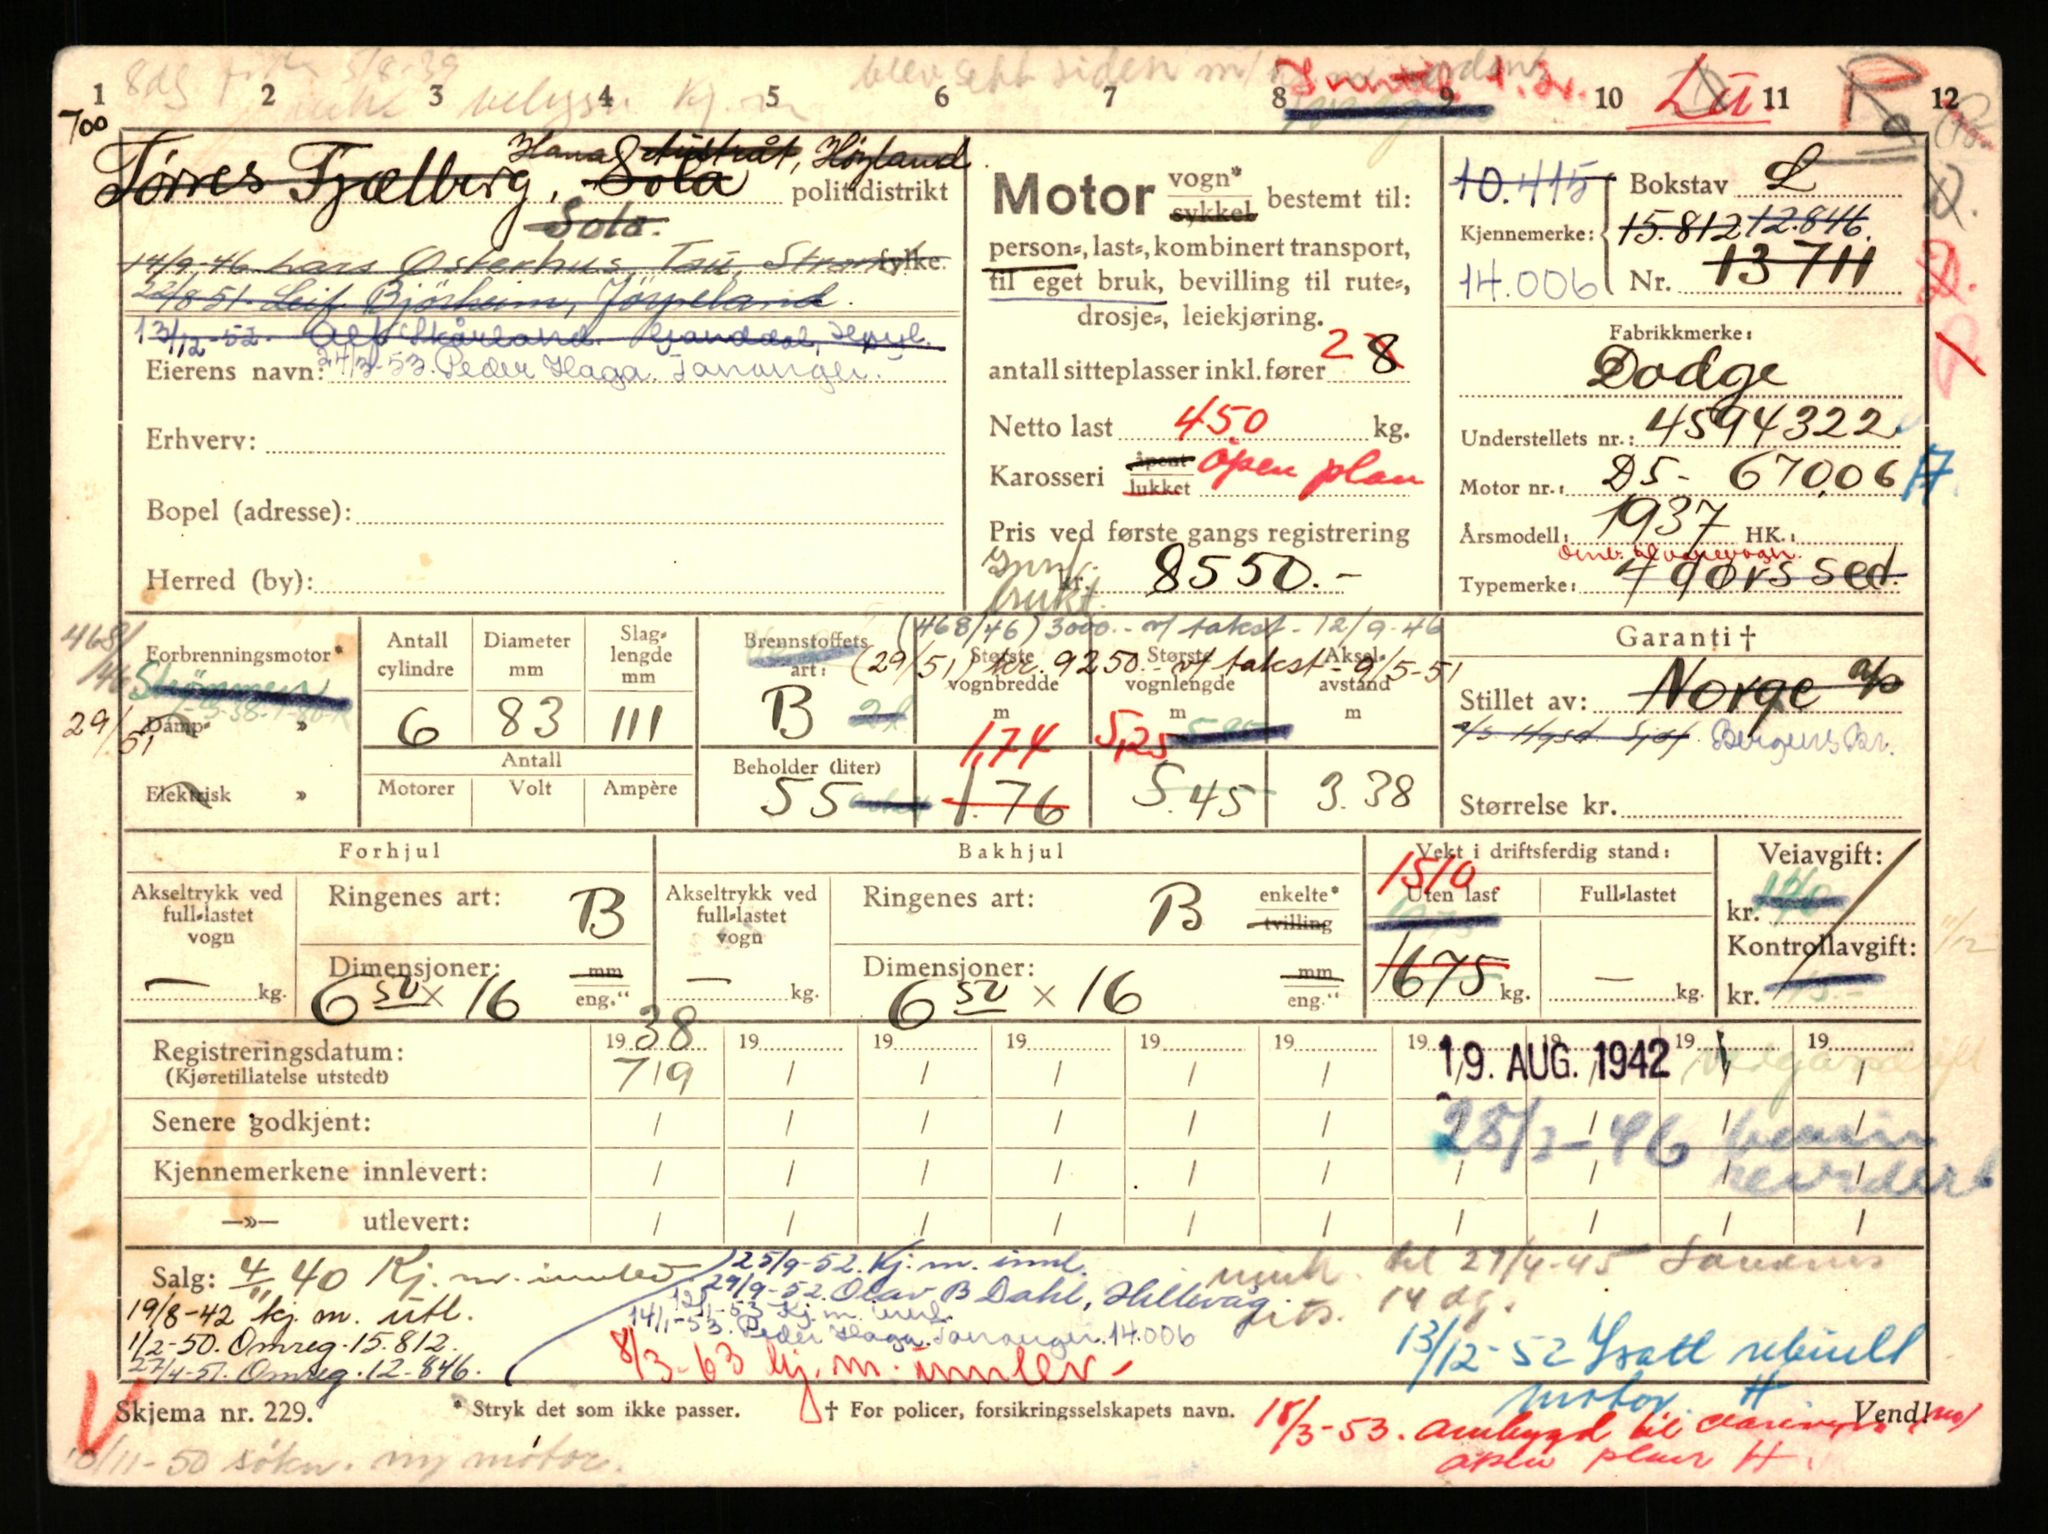 8dg 5/8-39 blev sett siden m/
1 2 3 4 5 6 7 8 9 10 11 12
700
Hana Austråt, Høyland
Tørres Fjælberg, Sola politidistrikt
Sola.
14/9-46 Lars Østerhus, Tau, Strand fylke
22/8 51. Leif Bjørheim, Jørpeland
13/12-52. Alf Skårland. Ganddal, Høyl.
Eierens navn: 24/3-53. Peder Haga. Tananger.
Erhverv:
Bopel (adresse):
Herred (by):
Motor vogn* sykkel bestemt til:
person-, last-, kombinert transport,
til eget bruk, bevilling til rute-,
drosje-, leiekjøring.
antall sitteplasser inkl. fører 2 8
Netto last 450 kg.
Karosseri åpent lukket åpen plan
Pris ved første gangs registrering
kr. 8550.-
brukt.
10.415 Bokstav L
Kjennemerke: 15.812 12.846.
14.006 Nr. 13711
Fabrikkmerke:
Dodge
Understellets nr.: 4594322
Motor nr.: D5- 67006
Årsmodell: 1937 HK.:
omb. til varevogn.
Typemerke: 4 dørs sed.
468/46
29/51
Forbrenningsmotor*
Strømmen
Damp- »
Elektrisk »
Antall cylindre 6
Diameter mm 83
Slaglengde mm 111
Antall
Motorer Volt Ampère
(468/46) 3000.- v/ takst - 12/9-46
(29/51) kr. 9250.- v/ takst - 9/5-51
Brennstoffets art: B
Beholder (liter) 55
Største vognbredde m 1,74 1.76
Største vognlengde m 5,25 5.45
Akselavstand m 3.38
Garanti †
Stillet av: Norge a/s
a/s Hgsd. Sjøf. Bergens Br.
Størrelse kr.
Forhjul
Akseltrykk ved full-lastet vogn — kg.
Ringenes art: B
Dimensjoner: 6 50 × 16 mm eng."
Bakhjul
Akseltrykk ved full-lastet vogn — kg.
Ringenes art: B enkelte* tvilling
Dimensjoner: 6 50 × 16 mm eng."
Vekt i driftsferdig stand:
1510
Uten last 1675 kg.
Full-lastet — kg.
Veiavgift:
kr.
Kontrollavgift:
kr.
11/12
Registreringsdatum: 19 38 19 19 19 19 19 19 19 19 19
(Kjøretillatelse utstedt) 7/9 19. AUG. 1942
Senere godkjent: 25/3-46 bensin
Kjennemerkene innlevert: revidert
—»— utlevert:
Salg: 4/11 40 Kj. m. innlev
19/8-42 kj. m. utl.
1/2-50. Omreg. 15.812.
27/4-51. Omreg. 12-846.
25/9-52. Kj. m. innl.
29/9-52. Olav B Dahl, Hillevåg
12/1-53 Kj. m. innl.
14/1-53. Peder Haga. Tananger. 14.006
8/3-63 kj. m. innlev.
til 29/4-45 Sandnes
14 dg.
13/12-52 Isatt rebuilt
motor. H
Skjema nr. 229. * Stryk det som ikke passer. † For policer, forsikringsselskapets navn. Vend!
18/3-53. ombygd til varevogn m/
åpen plan H.
10/11-50 søkn. ny motor.